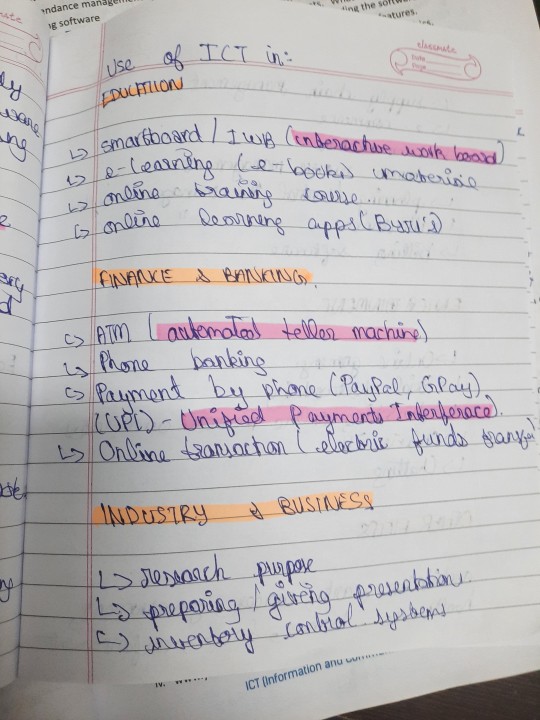 ndance managem
ng software
ing the softw
atures.
classmate
Date
Page
Use of ICT in:
EDUCATION
↳ smartboard / IWB (interactive work board)
↳ e-learning (e-books) material
↳ online training course
↳ online learning apps (Byju's)
FINANCE & BANKING.
↳ ATM (automated teller machine)
↳ Phone banking
↳ Payment by phone (PayPal, GPay)
(UPI) - Unified Payments Interface).
↳ Online transaction (electronic funds transfer
INDUSTRY & BUSINESS
↳ research purpose
↳ preparing / giving presentations.
↳ inventory control systems
ICT (Information and